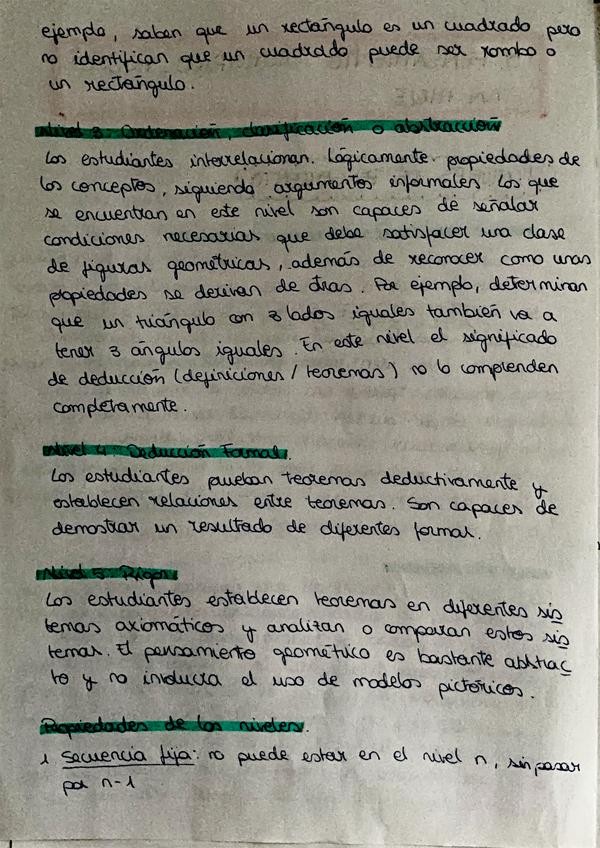 ejemplo, saben que un rectángulo es un cuadrado pero
no identifican que un cuadrado puede ser rombo o
un rectángulo.
Nivel 3: Ordenación, clasificación o abstracción
Los estudiantes interrelacionan. Lógicamente. propiedades de
los conceptos, siguiendo argumentos informales. Los que
se encuentran en este nivel son capaces de señalar
condiciones necesarias que debe satisfacer una clase
de figuras geométricas, además de reconocer como unas
propiedades se derivan de otras. Por ejemplo, determinan
que un triángulo con 3 lados iguales también va a
tener 3 ángulos iguales. En este nivel el significado
de deducción (definiciones / teoremas) no lo comprenden
completamente.
Nivel 4: Deducción Formal.
Los estudiantes prueban teoremas deductivamente y
establecen relaciones entre teoremas. Son capaces de
demostrar un resultado de diferentes formas.
Nivel 5: Rigor
Los estudiantes establecen teoremas en diferentes sis
temas axiomáticos y analizan o comparan estos sis
temas. El pensamiento geométrico es bastante abstrac
to y no involucra el uso de modelos pictóricos.
Propiedades de los niveles.
1 Secuencia fija: no puede estar en el nivel n, sin pasar
por n-1